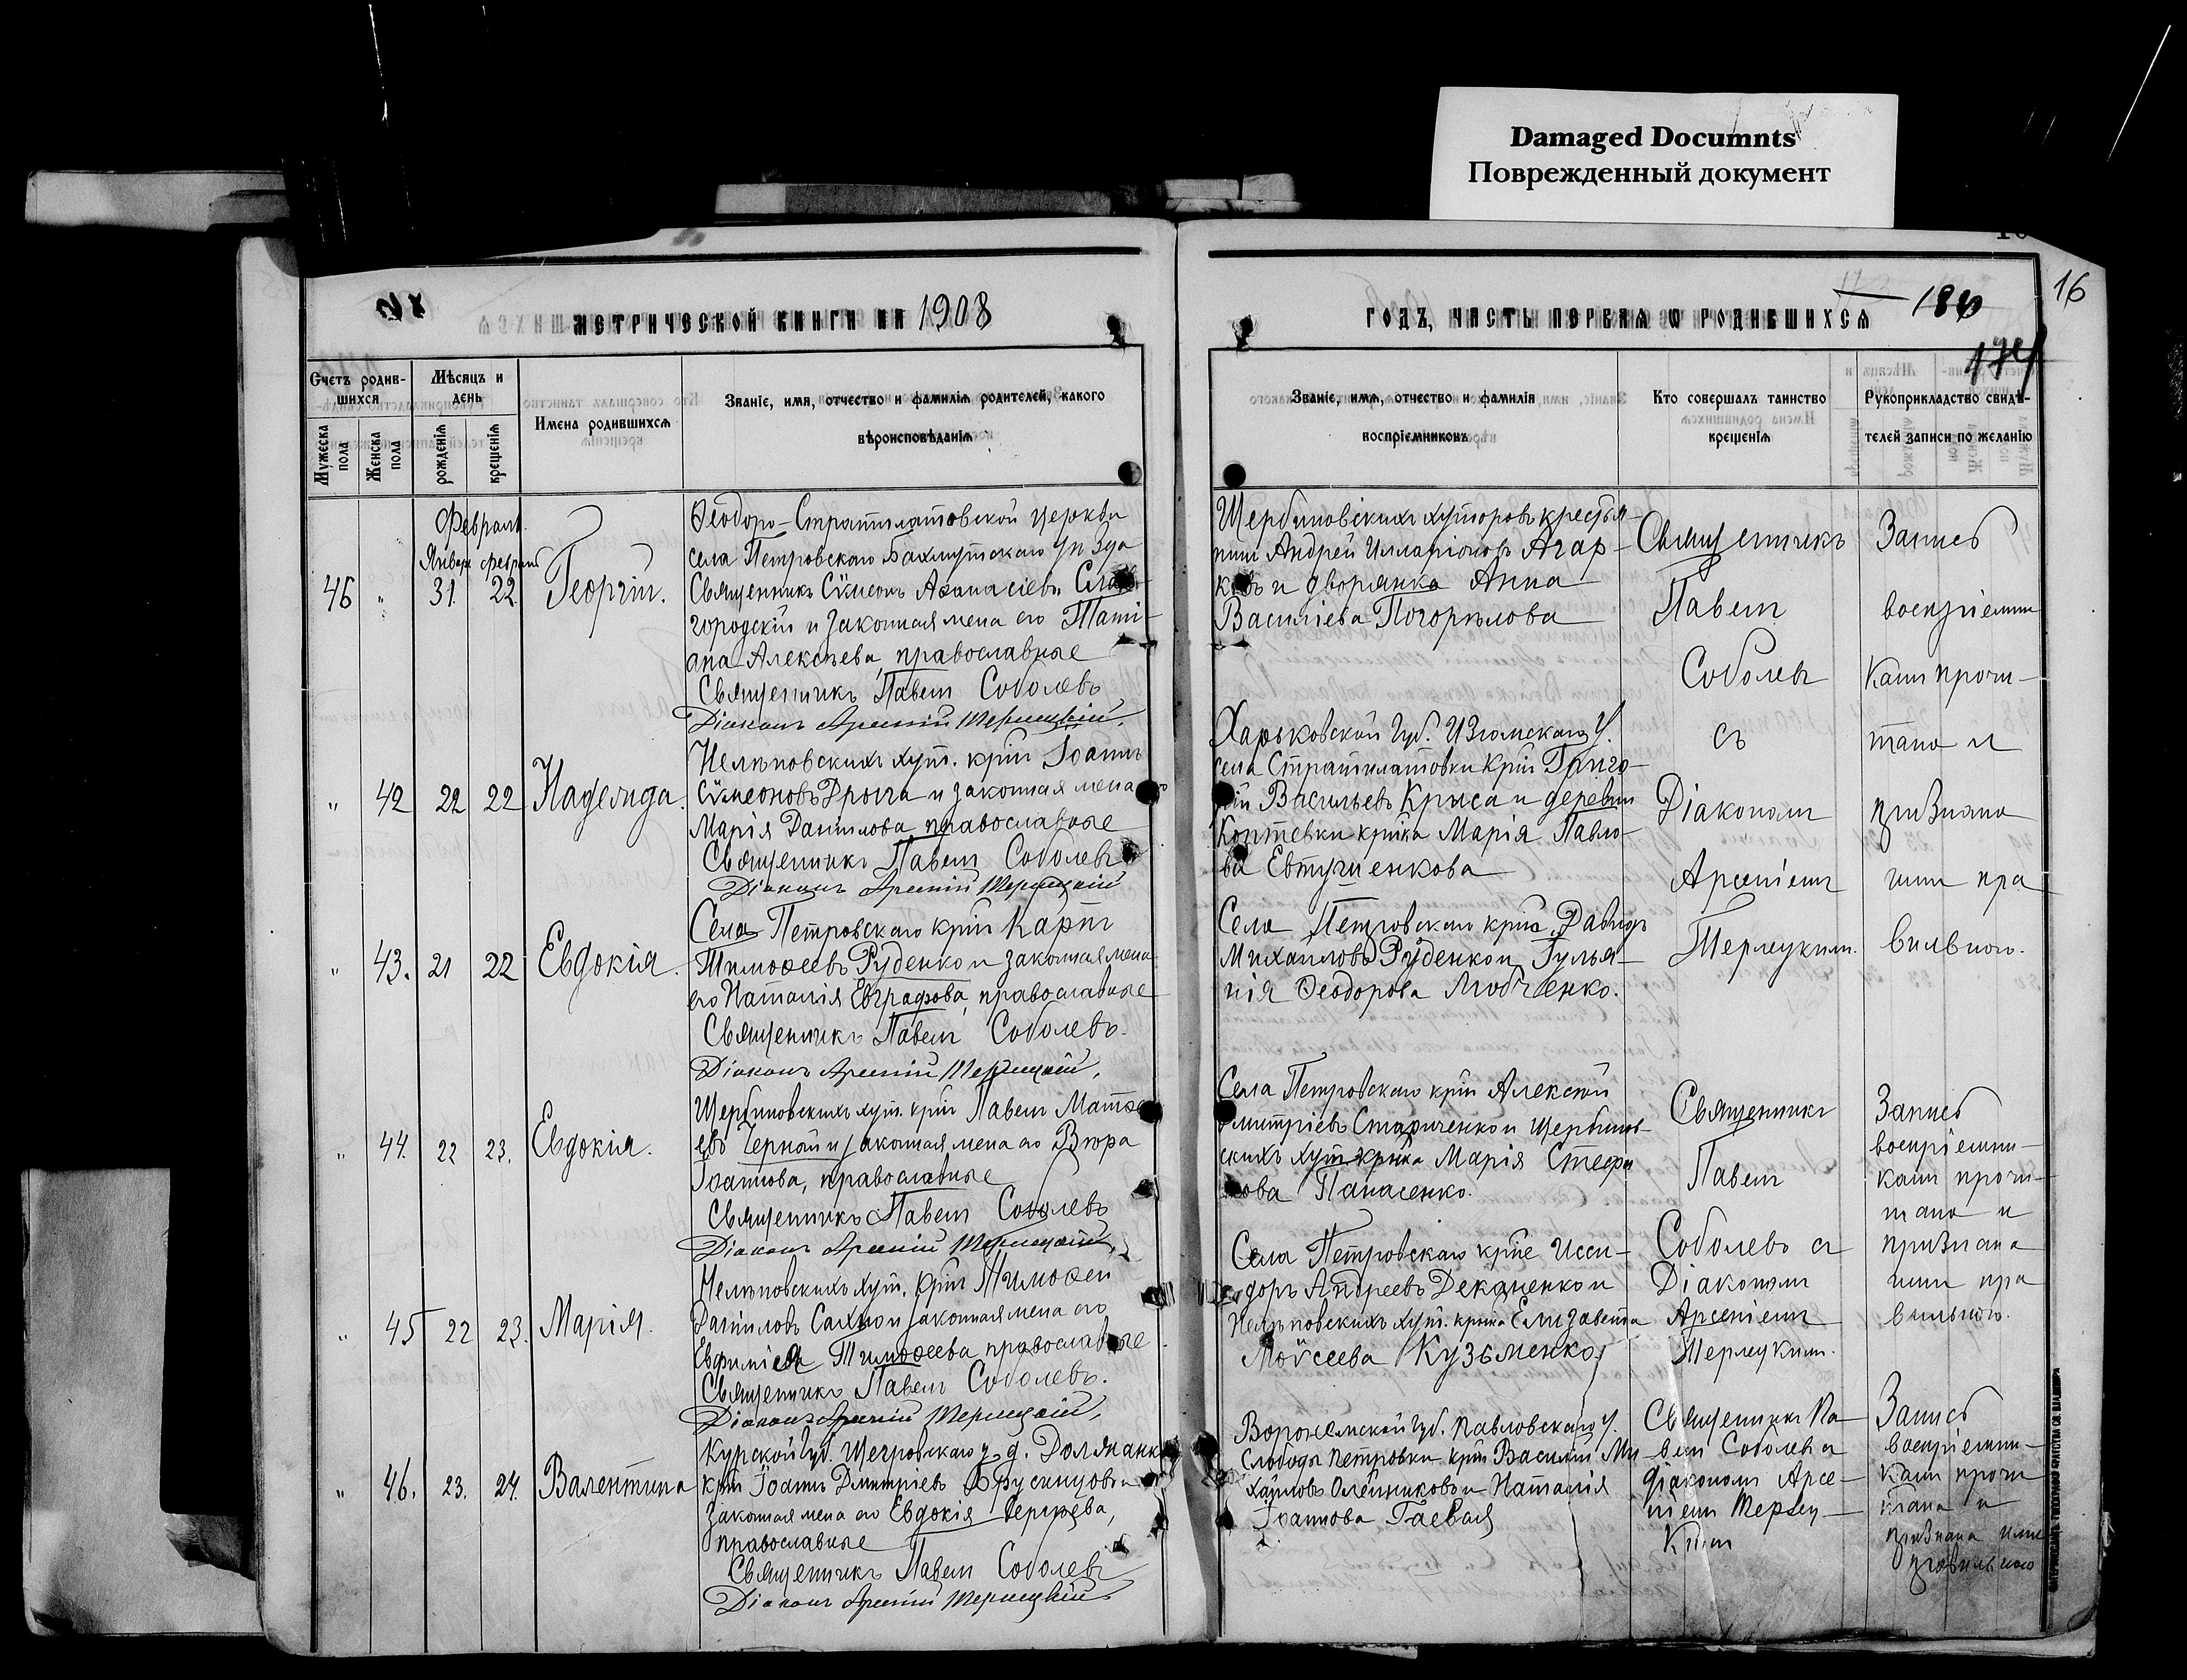 Damaged Documnts
Поврежденный документ
16
МЕТРИЧЕСКОЙ КНИГИ НА 1908
ГОДЪ, ЧАСТЬ ПЕРВАЯ О РОДИВШИХСЯ
174
Счетъ родив-
шихся
Мѣсяцъ и
день
Мужеска
пола
Женска
пола
рожденія
крещенія
Имена родившихся
Званіе, имя, отчество и фамилія родителей, какого
вѣроисповѣданія
Званіе, имя, отчество и фамилія
воспріемниковъ
Кто совершалъ таинство
крещенія
Рукоприкладство свидѣ-
телей записи по желанію
Февраль
Январь февраль
46 " 31. 22. Георгій.
Ѳеодоро-Стратилатовской церкви
села Петровскаго Бахмутскаго уѣзда
Священникъ Сѵмеонъ Аѳанасіевъ Слав-
городскій и законная жена его Таті-
ана Алексѣева, православные
Священникъ Павелъ Соболевъ
Діаконъ Арсеній Терлецкій.
Щербиновскихъ хуторовъ крестья-
нинъ Андрей Илларіоновъ Агар-
ковъ и дворянка Анна
Василіева Погорѣлова
Священникъ
Павелъ
Соболевъ
съ
Діакономъ
Арсеніемъ
Терлецкимъ.
Запись
воспріемни
ками прочи-
тана и
признана
ими пра
вильною.
" 42 22 22 Надежда.
Нелѣповскихъ хут. крнъ Іоаннъ
Сѵмеоновъ Дрыга и законная жена
Марія Даніилова, православные
Священникъ Павелъ Соболевъ
Діаконъ Арсеній Терлецкій
Харьковской Губ. Изюмскаго У.
села Стратилатовки крнъ Григо-
рій Васильевъ Крыса и деревни
Коптевки крнка Марія Павло-
ва Евтушенкова
" 43. 21 22 Евдокія.
Села Петровскаго крнъ Карпъ
Тимоѳеевъ Руденко и законная жена
его Наталія Евграфова, православные
Священникъ Павелъ Соболевъ.
Діаконъ Арсеній Терлецкій.
Села Петровскаго крнъ Давидъ
Михаиловъ Руденко и Гулья-
нія Ѳеодорова Любченко.
" 44. 22 23. Евдокія.
Щербиновскихъ хут. крнъ Павелъ Матѳе
евъ Черной и законная жена его Вѣра
Іоаннова, православные
Священникъ Павелъ Соболевъ
Діаконъ Арсеній Терлецкій.
Села Петровскаго крнъ Алексѣй
Димитріевъ Стариченко и Щербинов-
скихъ хут. крнка Марія Стефа
нова Панасенко.
Священникъ
Павелъ
Соболевъ съ
Діакономъ
Арсеніемъ
Терлецкимъ.
Запись
воспріемни-
ками прочи-
тана и
признана
ими пра
вильною.
" 45 22 23. Марія.
Нелѣповскихъ хут. крнъ Тимоѳей
Даніиловъ Сахно и законная жена его
Евфимія Тимоѳеева, православные
Священникъ Павелъ Соболевъ.
Діаконъ Арсеній Терлецкій.
Села Петровскаго крнъ Иси-
доръ Андреевъ Деканенко и
Нелѣповскихъ хут. крнка Елизавета
Моѵсеева Кузьменко.
" 46. 23. 24. Валентина
Курской губ. Щегровскаго у. д. Должанки
крнъ Іоаннъ Дмитріевъ
законная жена его Евдокія Сергѣева,
православные
Священникъ Павелъ Соболевъ
Діаконъ Арсеній Терлецкій
Воронежской Губ. Павловскаго У.
Слободы Петровки крнъ Василій Ми
хаиловъ Олейниковъ и Наталія
Іоаннова Гаевая
Священникъ Па-
велъ Соболевъ съ
діакономъ Арсе-
ніемъ Терлец-
кимъ
Запись
воспріемни-
ками прочи
тана и
признана ими
правильною